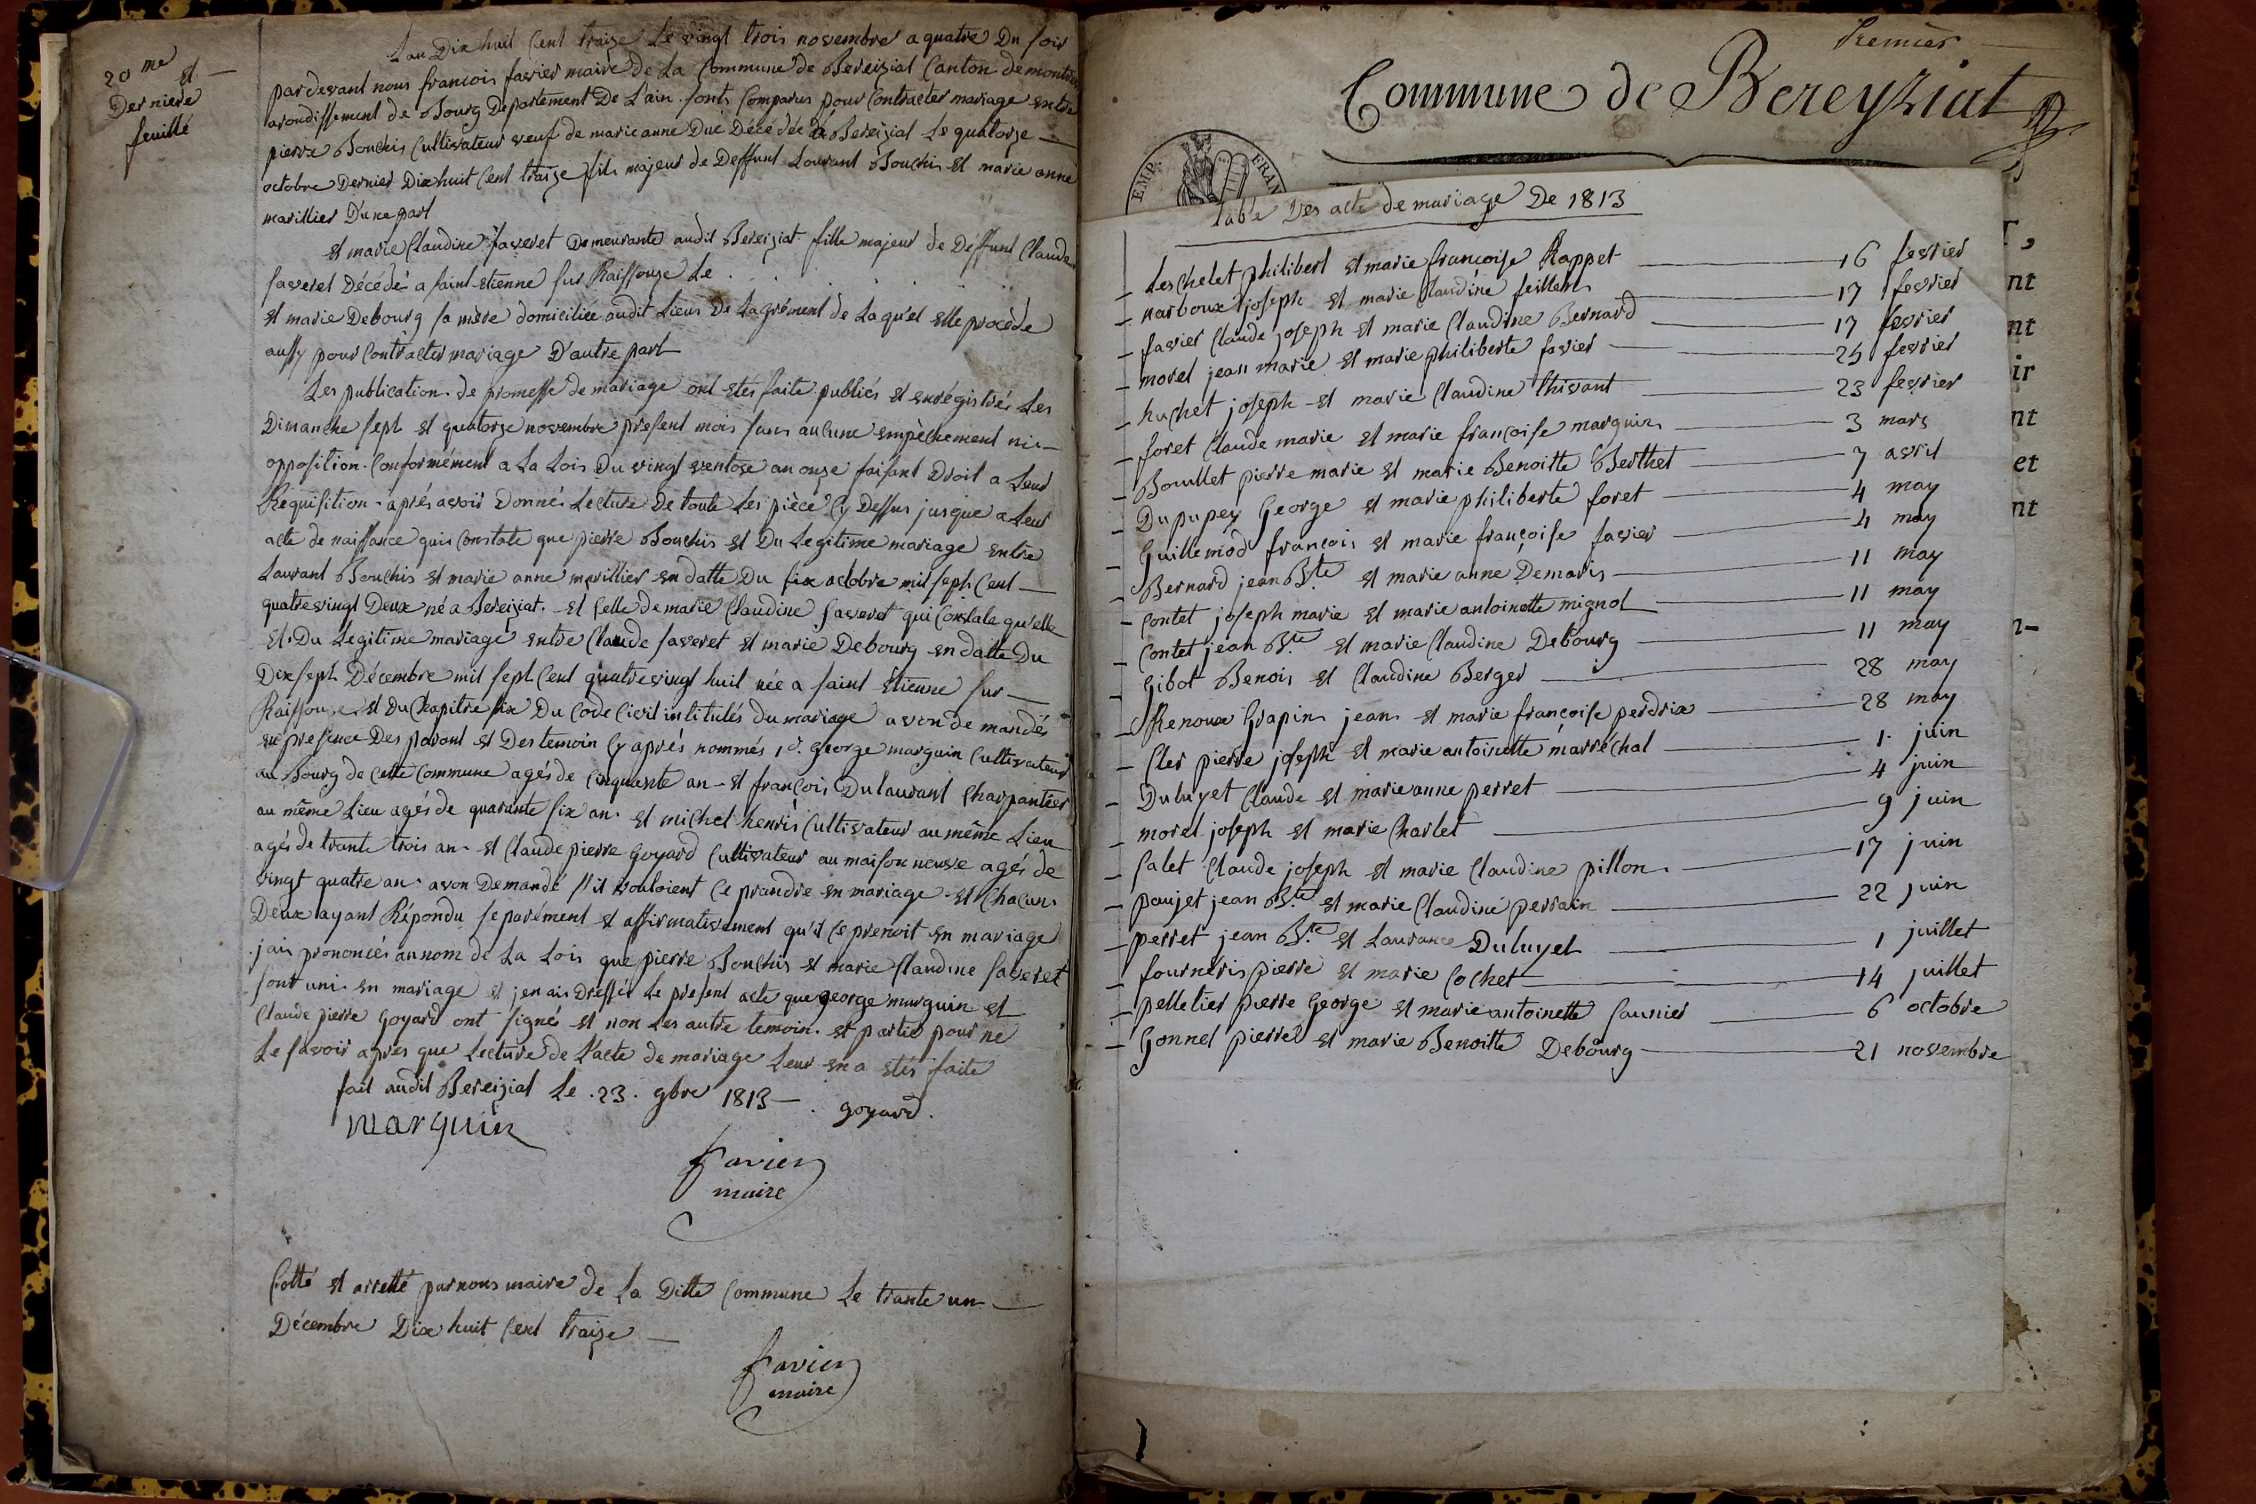 20me
et
Derniere
feuille
L'an Dix huit Cent traize Le vingt trois novembre a quatre Du soir
pardevant nous francois favier maire de La Commune de Bereiziat Canton de
arondissement de Bourg Departement De L'ain. sont Comparus pour Contracter mariage entre
pierre Bouchis Cultivateur veuf de marie anne Décédée a Bereiziat Le quatorze
octobre Dernier Dix huit Cent traize fils majeur de Deffunt Laurant Bouchis et marie anne
marillier D'une part
et marie Claudine faveret Demeurante audit Bereiziat fille majeur de Deffunt Claude
faveret Décédé a saint-etienne sur Raissouze Le
et marie Debourg sa mère domiciliée audit Lieus de Lagrément de Laqu'el elle procède
aussy pour Contracter mariage D'autre part
Les publication de promesse de mariage ont etés faite publiés et enrégistrés Les
Dimanche sept et quatorze novembre present mois sans aucune empêchement ni
opposition. Conformément a La Lois Du vingt ventose an onze faisant Droit a Leur
Requisition après avoir Donnés Lecture De toute Les pièce Cy Dessus jusque a Leur
acte de naissance qui Constate que pierre Bouchis et Du Legitime mariage entre
Laurant Bouchis et marie anne marillier en datte Du six octobre mil sept Cent
quatrevingt Deux né a Bereiziat. et Celle de marie Claudine faveret qui Constate qu'elle
et Du Legitime mariage entre Claude faveret et marie Debourg en datte Du
Dix sept Décembre mil sept Cent quatrevingt huit née a saint Etienne sur
Raissouze et Du Chapitre six Du Code Civil intitulés du mariage avon demandés
en presence Des parant et Des temoin Cy après nommés 1o. George marguin Cultivateur
au Bourg de Cette Commune agés de Cinquante an et françois Dulaurant Charpantier
au même Lieu agés de quarante six an. et michel henris Cultivateur au même Lieu
agés de trante trois an et Claude pierre Goyard Cultivateur au maison neuve agés de
vingt quatre an avon Demandé s'il vouloient Ce prandre en mariage et Chacun
Deux ayant Répondu séparément et affirmativement qu'il Ce prenoit en mariage
jais prononcés au nom de La Lois que pierre Bouchis et marie Claudine faveret
sont unis en mariage et jen ais Dressés Le present acte que george marguin et
Claude pierre Goyard ont signé et non Les autre temoin et partie pour ne
Le savoir après que Lecture de L'acte de mariage Leur en a etés faite
fait audit Bereiziat Le .23. gbre 1813
marguin goyard
favier
maire
Cotté et arretté par nous maire de La Ditte Commune Le trante un
Décembre Dix huit Cent traize
favier
maire
Premier
Commune de Bereyziat
EMP. FRAN
Table Des acte de mariage De 1813
Leschelet philibert et marie francoise Rappet 16 fevrier
narboux joseph et marie Claudine feillent 17 fevrier
favier Claude joseph et marie Claudine Bernard 17 fevrier
morel jean marie et marie philiberte favier 25 fevrier
huchet joseph et marie Claudine thivant 23 fevrier
foret Claude marie et marie françoise marguin 3 mars
Boullet pierre marie et marie Benoitte Berthet 7 avril
Dupupey George et marie philiberte foret 4 may
Guillemod francois et marie françoise favier 4 may
Bernard jean Bte et marie anne Demaris 11 may
Contet joseph marie et marie antoinette mignot 11 may
Contet jean Bte et marie Claudine Debourg 11 may
Gibot Benois et Claudine Berger 28 may
Renoux Grapin jean et marie françoise perdrix 28 may
Cler pierre joseph et marie antoinette marréchal 1. juin
Duluyet Claude et marie anne perret 4 juin
morel joseph et marie Charlet 9 juin
Calet Claude joseph et marie Claudine pillon 17 juin
paujet jean Bte et marie Claudine perrain 22 juin
perret jean Bte et Laurance Duluyet 1 juillet
fourneris pierre et marie Cochet 14 juillet
pelletier pierre George et marie antoinette saunier 6 octobre
Gonnel pierre et marie Benoitte Debourg 21 novembre
nt
nt
ir
nt
et
nt